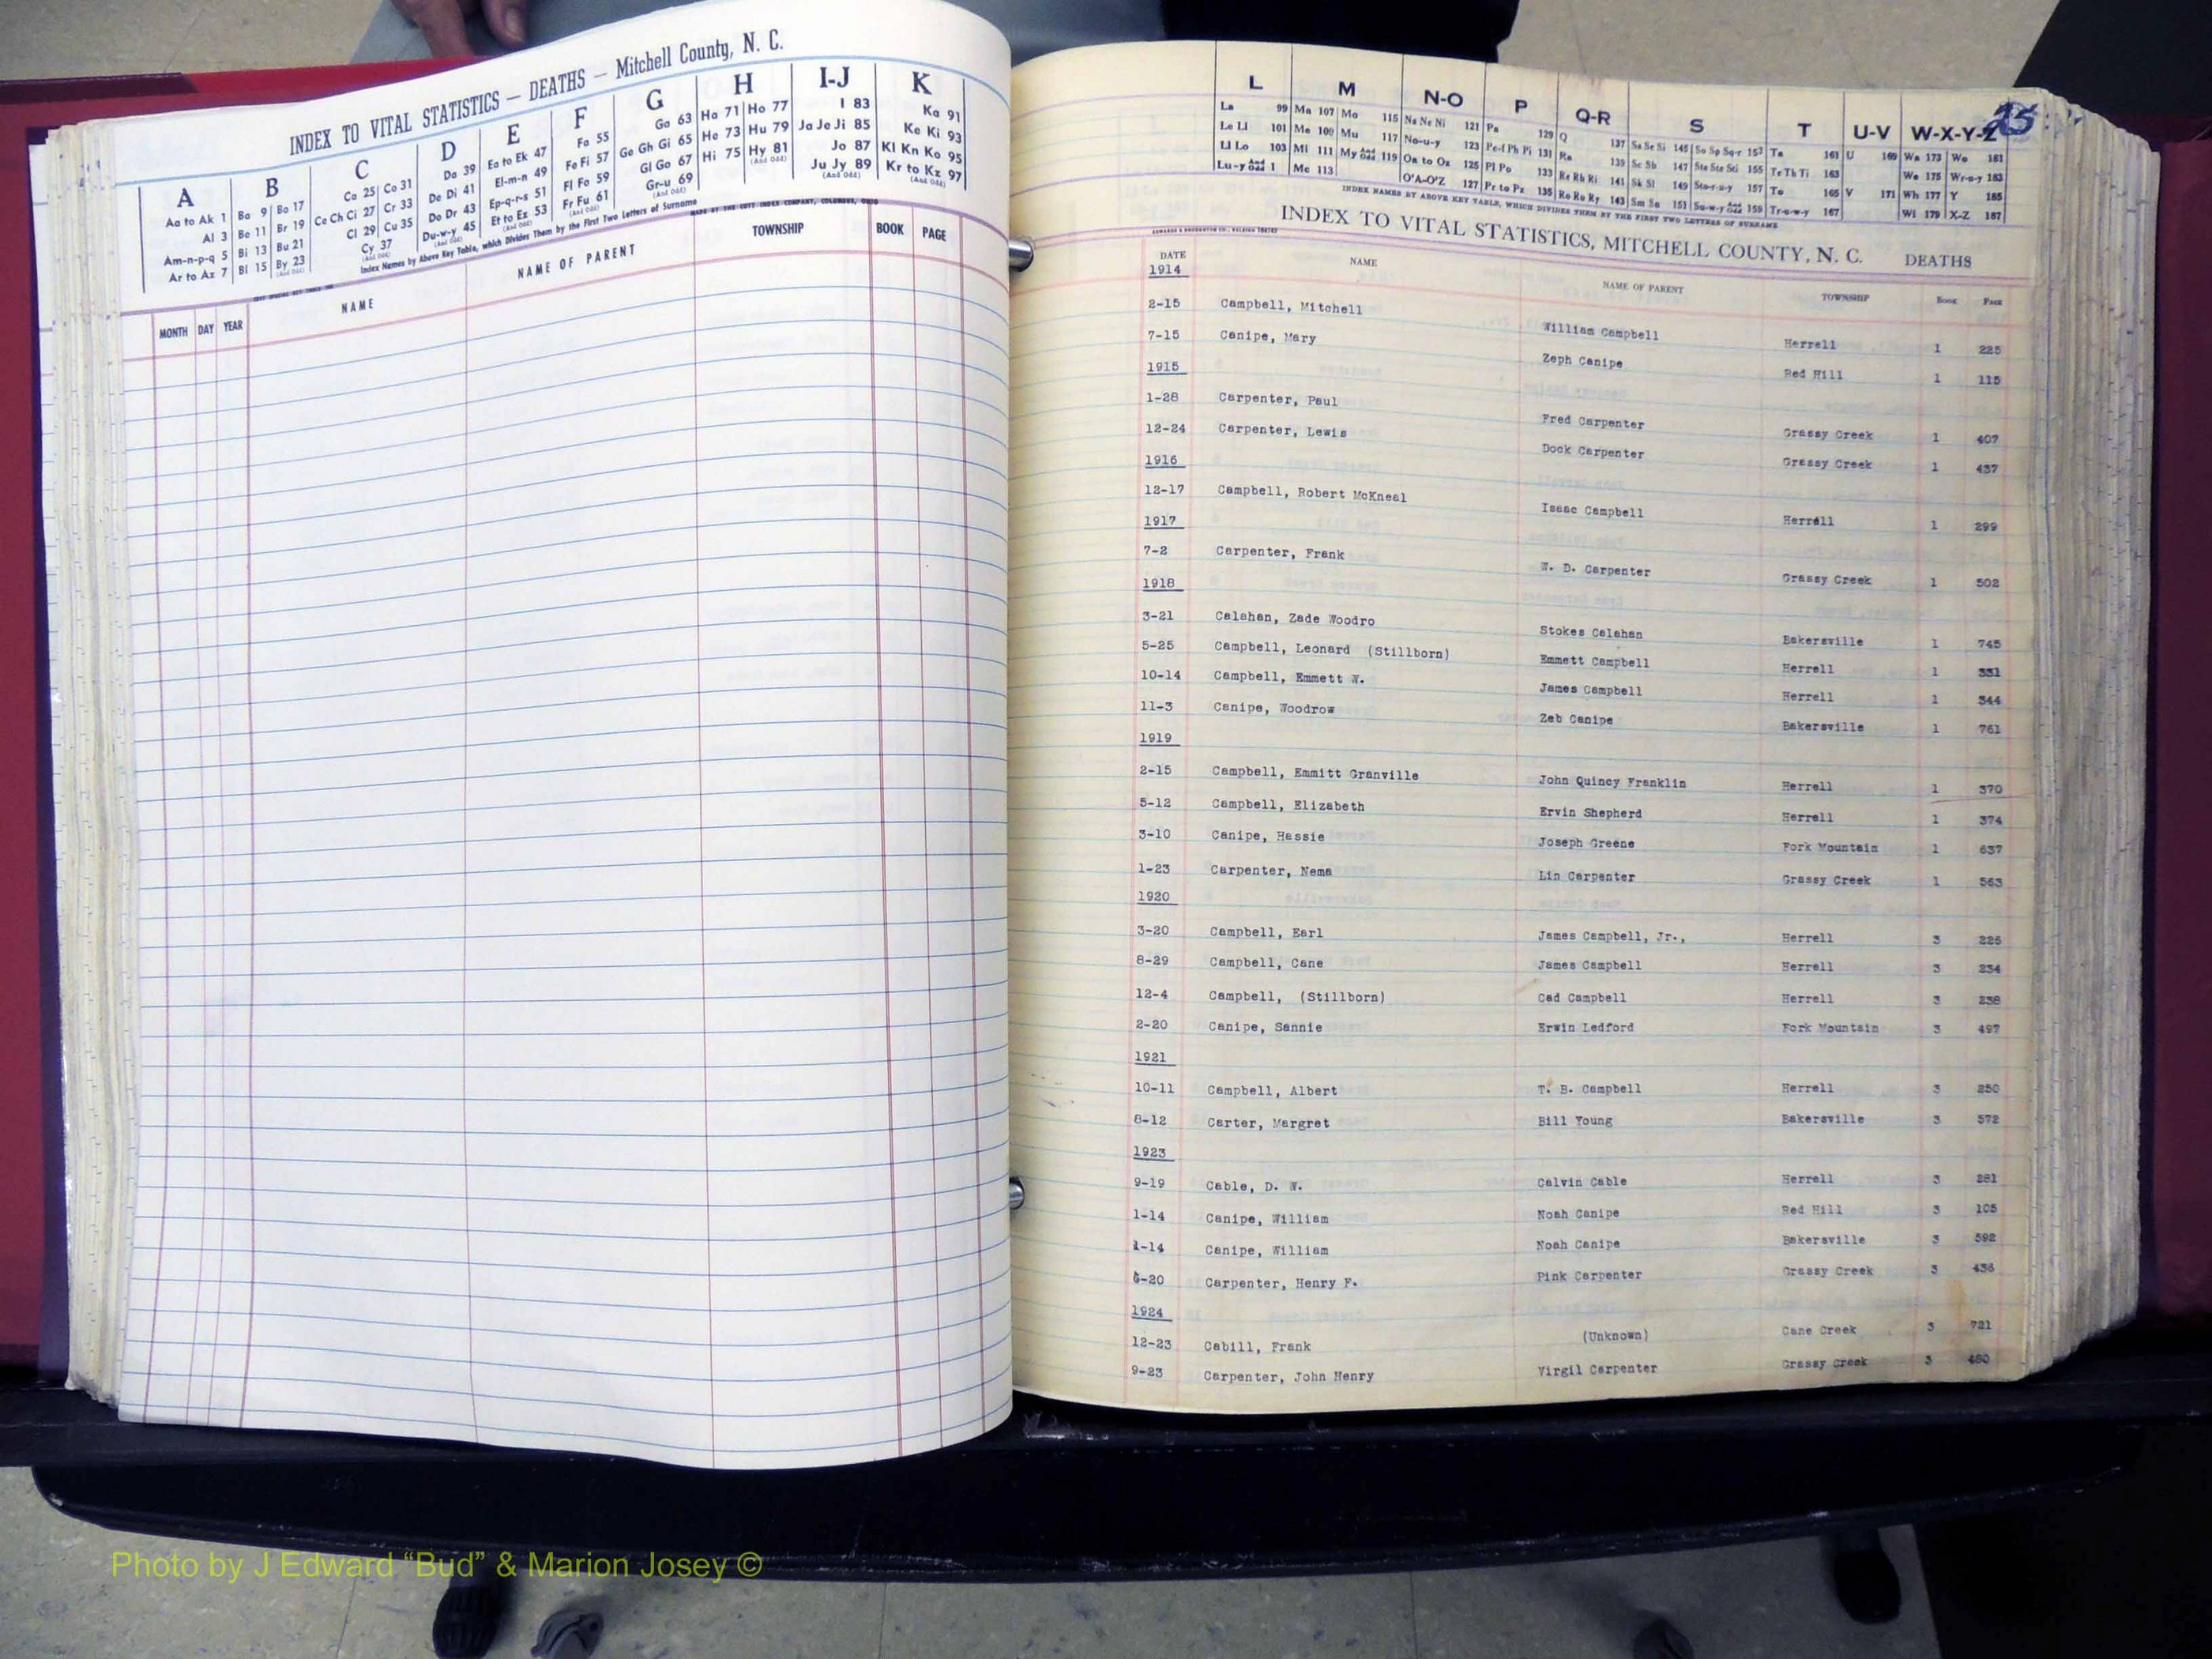 INDEX TO VITAL STATISTICS — DEATHS — Mitchell County, N. C.
A B C D E F G H I-J K
Aa to Ak 1 Ba 9 Bo 17 Ca 25 Co 31 Da 39 Ea to Ek 47 Fa 55 Ga 63 Ha 71 Ho 77 I 83 Ka 91
Al 3 Be 11 Br 19 Ce Ch Ci 27 Cr 33 De Di 41 El-m-n 49 Fe Fi 57 Ge Gh Gi 65 He 73 Hu 79 Ja Je Ji 85 Ke Ki 93
Am-n-p-q 5 Bi 13 Bu 21 Cl 29 Cu 35 Do Dr 43 Ep-q-r-s 51 Fl Fo 59 Gl Go 67 Hi 75 Hy 81 (And Odd) Jo 87 Kl Kn Ko 95
Ar to Az 7 Bl 15 By 23 (And Odd) Cy 37 (And Odd) Du-w-y 45 (And Odd) Et to Ez 53 (And Odd) Fr Fu 61 (And Odd) Gr-u 69 (And Odd) Ju Jy 89 (And Odd) Kr to Kz 97 (And Odd)
Index Names by Above Key Table, which Divides Them by the First Two Letters of Surname
MADE BY THE COTT INDEX COMPANY, COLUMBUS, OHIO
MONTH DAY YEAR NAME NAME OF PARENT TOWNSHIP BOOK PAGE
L M N-O P Q-R S T U-V W-X-Y-Z 25
La 99 Ma 107 Mo 115 Na Ne Ni 121 Pa 129 Q 137 Sa Se Si 145 So Sp Sq-r 153 Ta 161 U 169 Wa 173 Wo 181
Le Li 101 Me 109 Mu 117 No-u-y 123 Pe-f Ph Pi 131 Ra 139 Sc Sh 147 Sta Ste Sti 155 Te Th Ti 163 We 175 Wr-u-y 183
Ll Lo 103 Mi 111 My And Odd 119 Oa to Oz 125 Pl Po 133 Re Rh Ri 141 Sk Sl 149 Sto-r-u-y 157 To 165 V 171 Wh 177 Y 185
Lu-y And Odd 1 Mc 113 O'A-O'Z 127 Pr to Pz 135 Ro Ru Ry 143 Sm Sn 151 Su-w-y And Odd 159 Tr-u-w-y 167 Wi 179 X-Z 187
INDEX NAMES BY ABOVE KEY TABLE, WHICH DIVIDES THEM BY THE FIRST TWO LETTERS OF SURNAME
INDEX TO VITAL STATISTICS, MITCHELL COUNTY, N. C. DEATHS
DATE NAME NAME OF PARENT TOWNSHIP BOOK PAGE
1914
2-15 Campbell, Mitchell William Campbell Herrell 1 225
7-15 Canipe, Mary Zeph Canipe Red Hill 1 115
1915
1-28 Carpenter, Paul Fred Carpenter Grassy Creek 1 407
12-24 Carpenter, Lewis Dock Carpenter Grassy Creek 1 437
1916
12-17 Campbell, Robert McKneal Isaac Campbell Herrell 1 299
1917
7-2 Carpenter, Frank W. D. Carpenter Grassy Creek 1 502
1918
3-21 Calahan, Zade Woodro Stokes Calahan Bakersville 1 745
5-25 Campbell, Leonard (Stillborn) Emmett Campbell Herrell 1 331
10-14 Campbell, Emmett W. James Campbell Herrell 1 344
11-3 Canipe, Woodrow Zeb Canipe Bakersville 1 761
1919
2-15 Campbell, Emmitt Granville John Quincy Franklin Herrell 1 370
5-12 Campbell, Elizabeth Ervin Shepherd Herrell 1 374
3-10 Canipe, Hassie Joseph Greene Fork Mountain 1 637
1-23 Carpenter, Nema Lin Carpenter Grassy Creek 1 563
1920
3-20 Campbell, Earl James Campbell, Jr., Herrell 3 225
8-29 Campbell, Cane James Campbell Herrell 3 234
12-4 Campbell, (Stillborn) Cad Campbell Herrell 3 238
2-20 Canipe, Sannie Erwin Ledford Fork Mountain 3 497
1921
10-11 Campbell, Albert T. B. Campbell Herrell 3 250
8-12 Carter, Margret Bill Young Bakersville 3 572
1923
9-19 Cable, D. W. Calvin Cable Herrell 3 281
1-14 Canipe, William Noah Canipe Red Hill 3 105
1-14 Canipe, William Noah Canipe Bakersville 3 592
6-20 Carpenter, Henry F. Pink Carpenter Grassy Creek 3 436
1924
12-23 Cabill, Frank (Unknown) Cane Creek 3 721
9-23 Carpenter, John Henry Virgil Carpenter Grassy Creek 3 480
Photo by J Edward “Bud” & Marion Josey ©